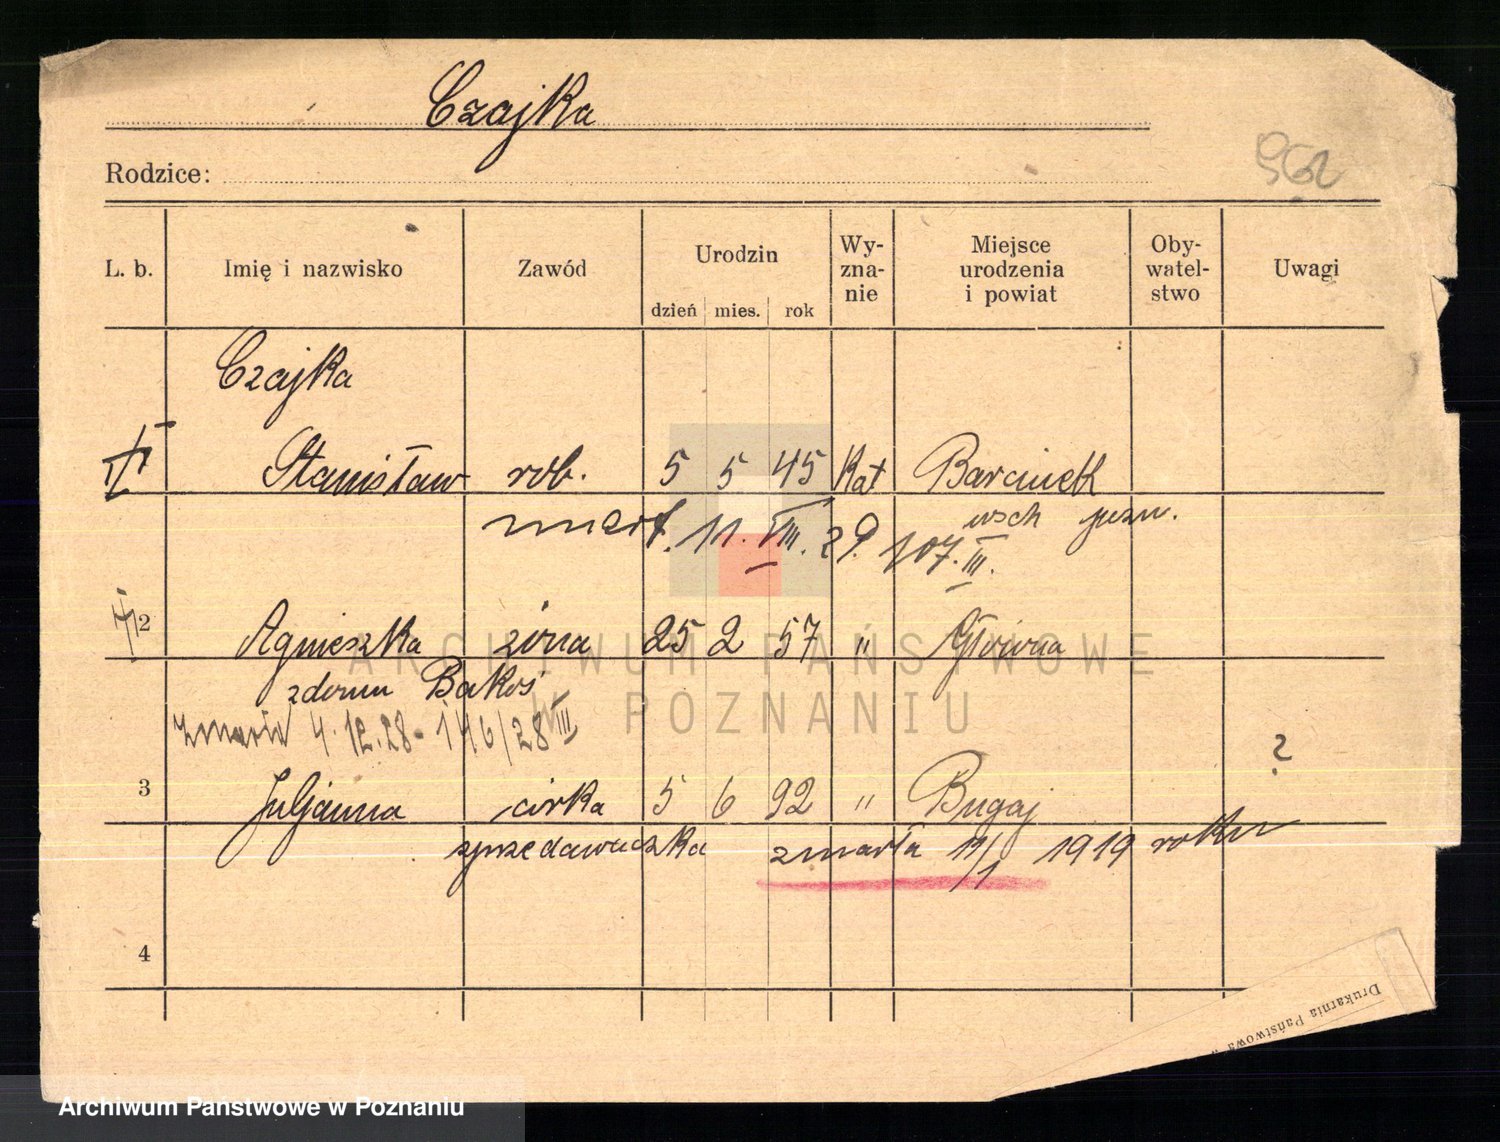 Czajka
Rodzice:
L. b. Imię i nazwisko Zawód Urodzin dzień mies. rok Wy-zna-nie Miejsce urodzenia i powiat Oby-watel-stwo Uwagi
Czajka
Stanisław rob. 5 5 45 Kat
zmarł. 11. VIII. 29. 107. III.
2 Agnieszka żona 25 2 57 " Główna
zdomu Bakoś
4.12.28 - 146/28 III
?
3 Juljanna córka 5 6 92 " Bugaj
sprzedawaczka zmarła 11/1 1919 roku
4
Drukarnia Państwowa w
ARCHIWUM PAŃSTWOWE
W POZNANIU
Archiwum Państwowe w Poznaniu